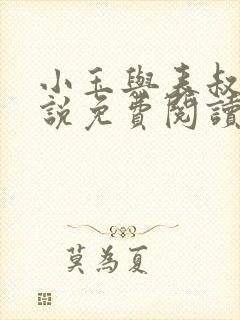 小玉與表叔
說免費閱讀
莫為夏